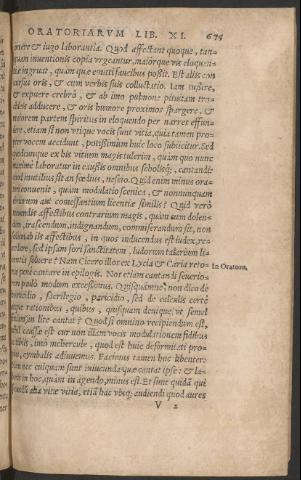 ORATORIARVM LIB. XI. 675
mere & iugo laborantia. Quod affectant quoque, tan-
quam inuentionis copia vrgeantur, maiorque vis eloquen-
tiæ ingruat, quam quæ emitti faucibus possit. Est aliis con
cursus oris, & cum verbis suis colluctatio. Iam tussire,
& expuere crebrò, & ab imo pulmone pituitam tro-
chleis adducere, & oris humore proximos spargere, &
maiorem partem spiritus in eloquendo per narres effun-
dere, etiam si non vtique vocis sunt vitia, quia tamen pro-
pter vocem accidunt, potissimùm huic loco subiicitur. Sed
quodcunque ex his vitium magis tulerim, quàm quo nunc
maximè laboratur in caussis omnibus scholisq́;, cantandi:
quod inutilius sit an fœdius, nescio. Quid enim minus ora-
tori conuenit, quàm modulatio scenica, & nonnunquam
ebriorum aut comessantium licentiæ similis? Quid verò
mouendis affectibus contrarium magis, quàm cum dolen-
dum, irascendum, indignandum, commiserandum sit, non
solùm ab iis affectibus, in quos inducendus est iudex, re-
cedere, sed ipsam fori sanctitatem, ludorum talarium li-
centia soluere? Nam Cicero illos ex Lycia & Caria reto-
res penè cantare in epilogis. Nos etiam cantandi seuerio-
rem paulò modum excessimus. Quisquamne, non dico de
homicidio, sacrilegio, parricidio, sed de calculis certè
atque rationibus, quisquam denique, vt semel
finiam in lite cantat? Quod si omnino recipiendum est,
nihil caussæ est cur non illam vocis modulationem fidibus
ac tibiis, imò mehercule, quod est huic deformitati pro-
pius, cymbalis adiuuemus. Facimus tamen hoc libenter:
nam nec cuiquam sunt iniucunda quæ cantat ipse: & la-
boris in hoc, quàm in agendo, minus est. Et sunt quidam qui
secundum alia vitæ vitia, etiã hac vbiq; audiendi quod aures
In Oratore.
V 2